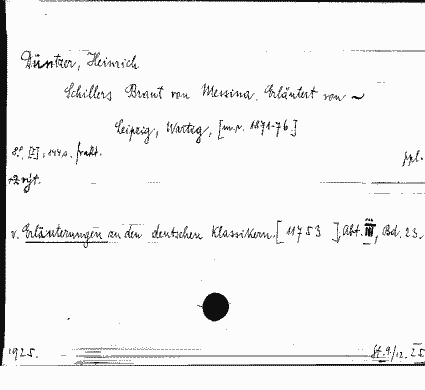 Düntzer, Heinrich
Schillers Braut von Messina. Erläutert von ~
Leipzig, Wartig, [m.n. 1871-76]
8°. [I], 144 s. frakt.
ppl.
v. Erläuterungen zu den deutschen Klassikern. [11753], Abt. III, Bd. 23.
1925.